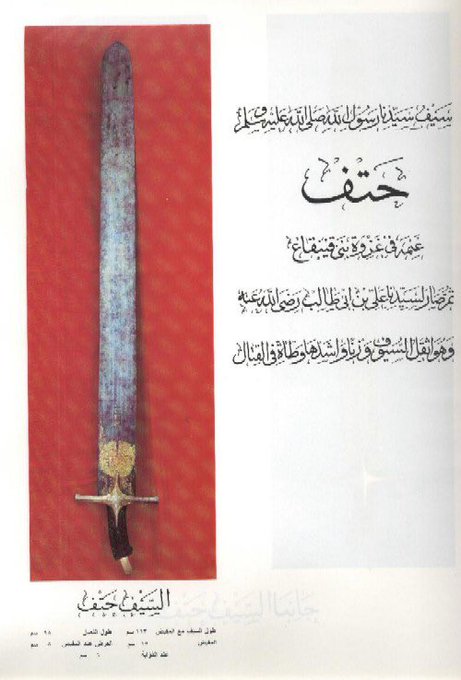 سَيْفُ سَيِّدِنَا رَسُولِ اللَّهِ صَلَّى اللَّهُ عَلَيْهِ وَسَلَّمَ
حَتْفٌ
غَنِمَهُ فِي غَزْوَةِ بَنِي قَيْنِقَاعْ
ثُمَّ صَارَ لِسَيِّدِنَا عَلِيِّ بْنِ أَبِي طَالِبٍ رَضِيَ اللَّهُ عَنْهُ
وَهُوَ أَثْقَلُ السُّيُوفِ وَزْنًا وَأَشَدُّهَا وَطْأَةً فِي الْقِتَالِ
السَّيْفُ حَتْفٌ
طول السيف مع المقبض ١١٣ سم طول النصل ٩٨ سم
المقبض ١٥ سم العرض عند المقبض ٨ سم
عند الذؤابة ٦ سم